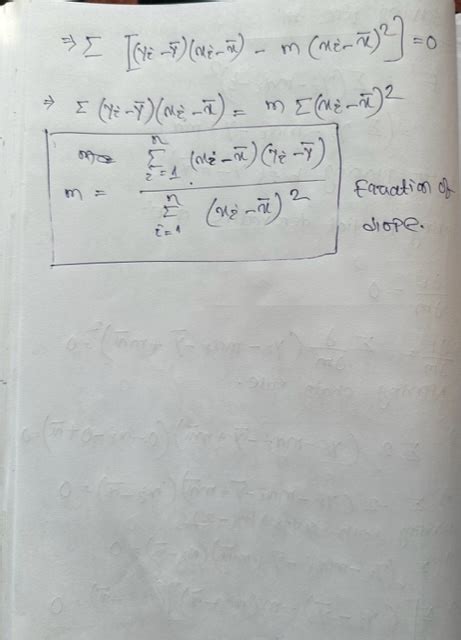 ⇒ Σ [(yi-ȳ)(xi-x̄) - m (xi-x̄)²] = 0
⇒ Σ (yi-ȳ)(xi-x̄) = m Σ(xi-x̄)²
m = Σ_{i=1}^{n} (xi-x̄)(yi-ȳ) / Σ_{i=1}^{n} (xi-x̄)²
Equation of
slope.